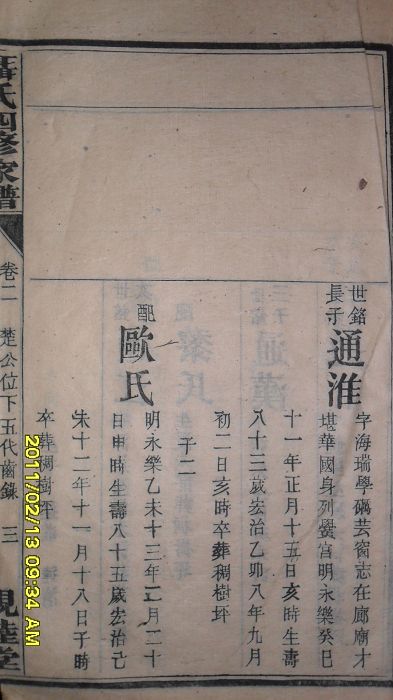 世銘
長子
通淮
字海瑞學礪芸窗志在廊廟才
堪華國身列黌宮明永樂癸巳
十一年正月十五日亥時生壽
八十三歲宏治乙卯八年九月
初二日亥時卒葬稠樹坪
子二
配
歐氏
明永樂乙未十三年二月二十
日申時生壽八十五歲宏治己
未十二年十一月十八日子時
卒葬稠樹坪
氏四修家譜
卷二 楚公位下五代齒錄 三
睦堂
2011/02/13 09:34 AM